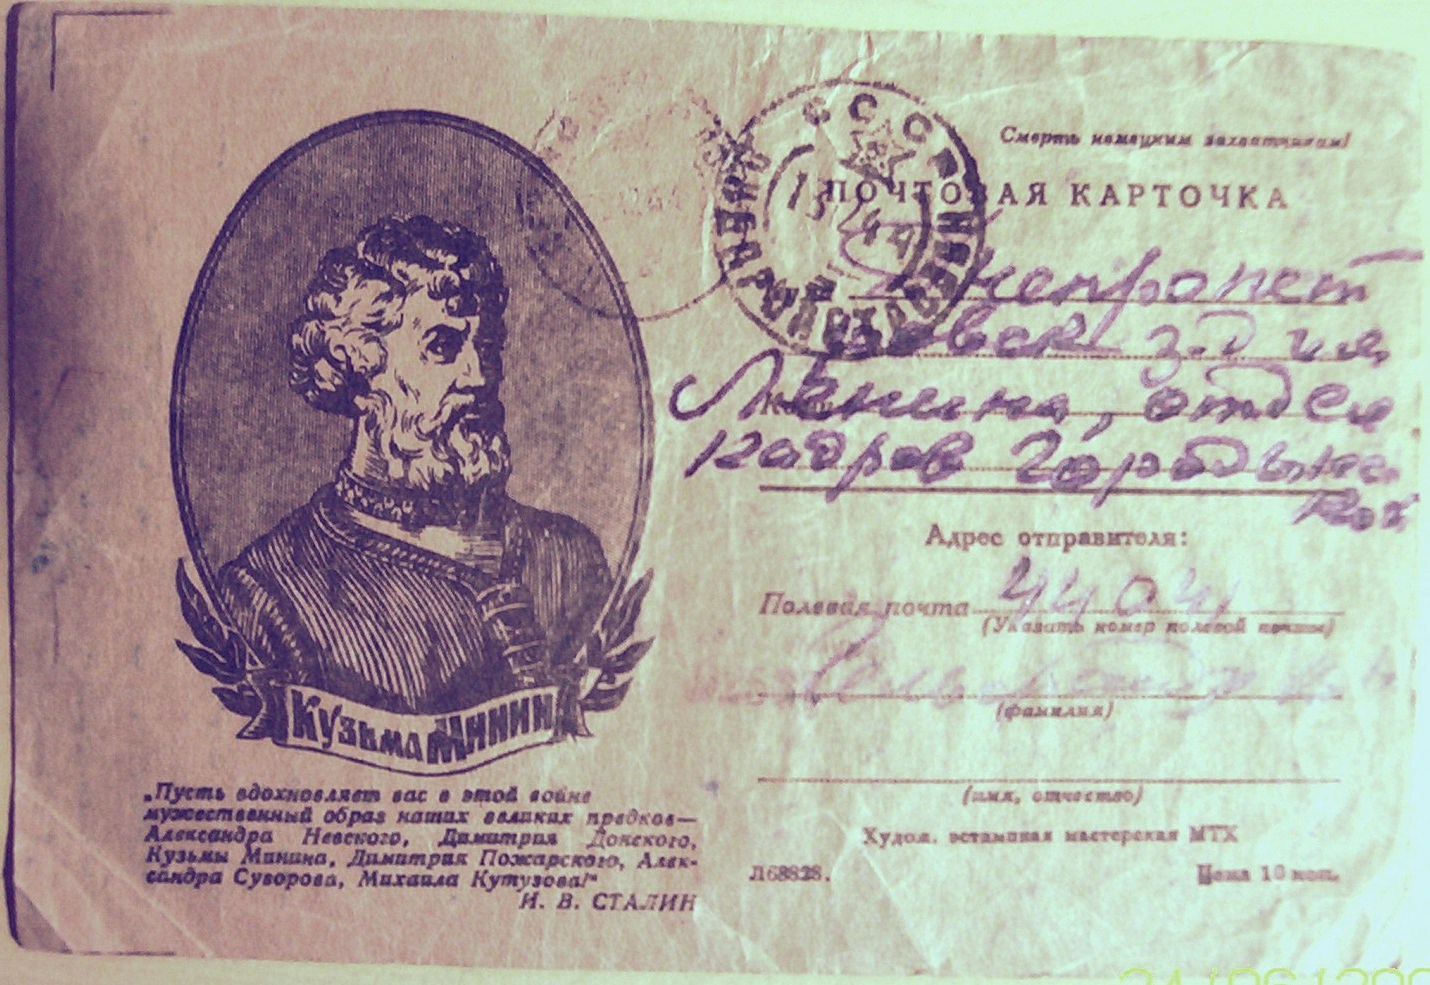 СССР
Смерть немецким захватчикам!
ПОЧТОВАЯ КАРТОЧКА
Днепропет
ровск з-д им
Куда
Ленина, отдел
кадров
Адрес отправителя:
Полевая почта
(Указать номер полевой почты)
(фамилия)
(имя, отчество)
Худож. эстампная мастерская МТХ
Л68828. Цена 10 коп.
Кузьма Минин
„Пусть вдохновляет вас в этой войне
мужественный образ наших великих предков—
Александра Невского, Димитрия Донского,
Кузьмы Минина, Димитрия Пожарского, Алек-
сандра Суворова, Михаила Кутузова!“
И. В. СТАЛИН